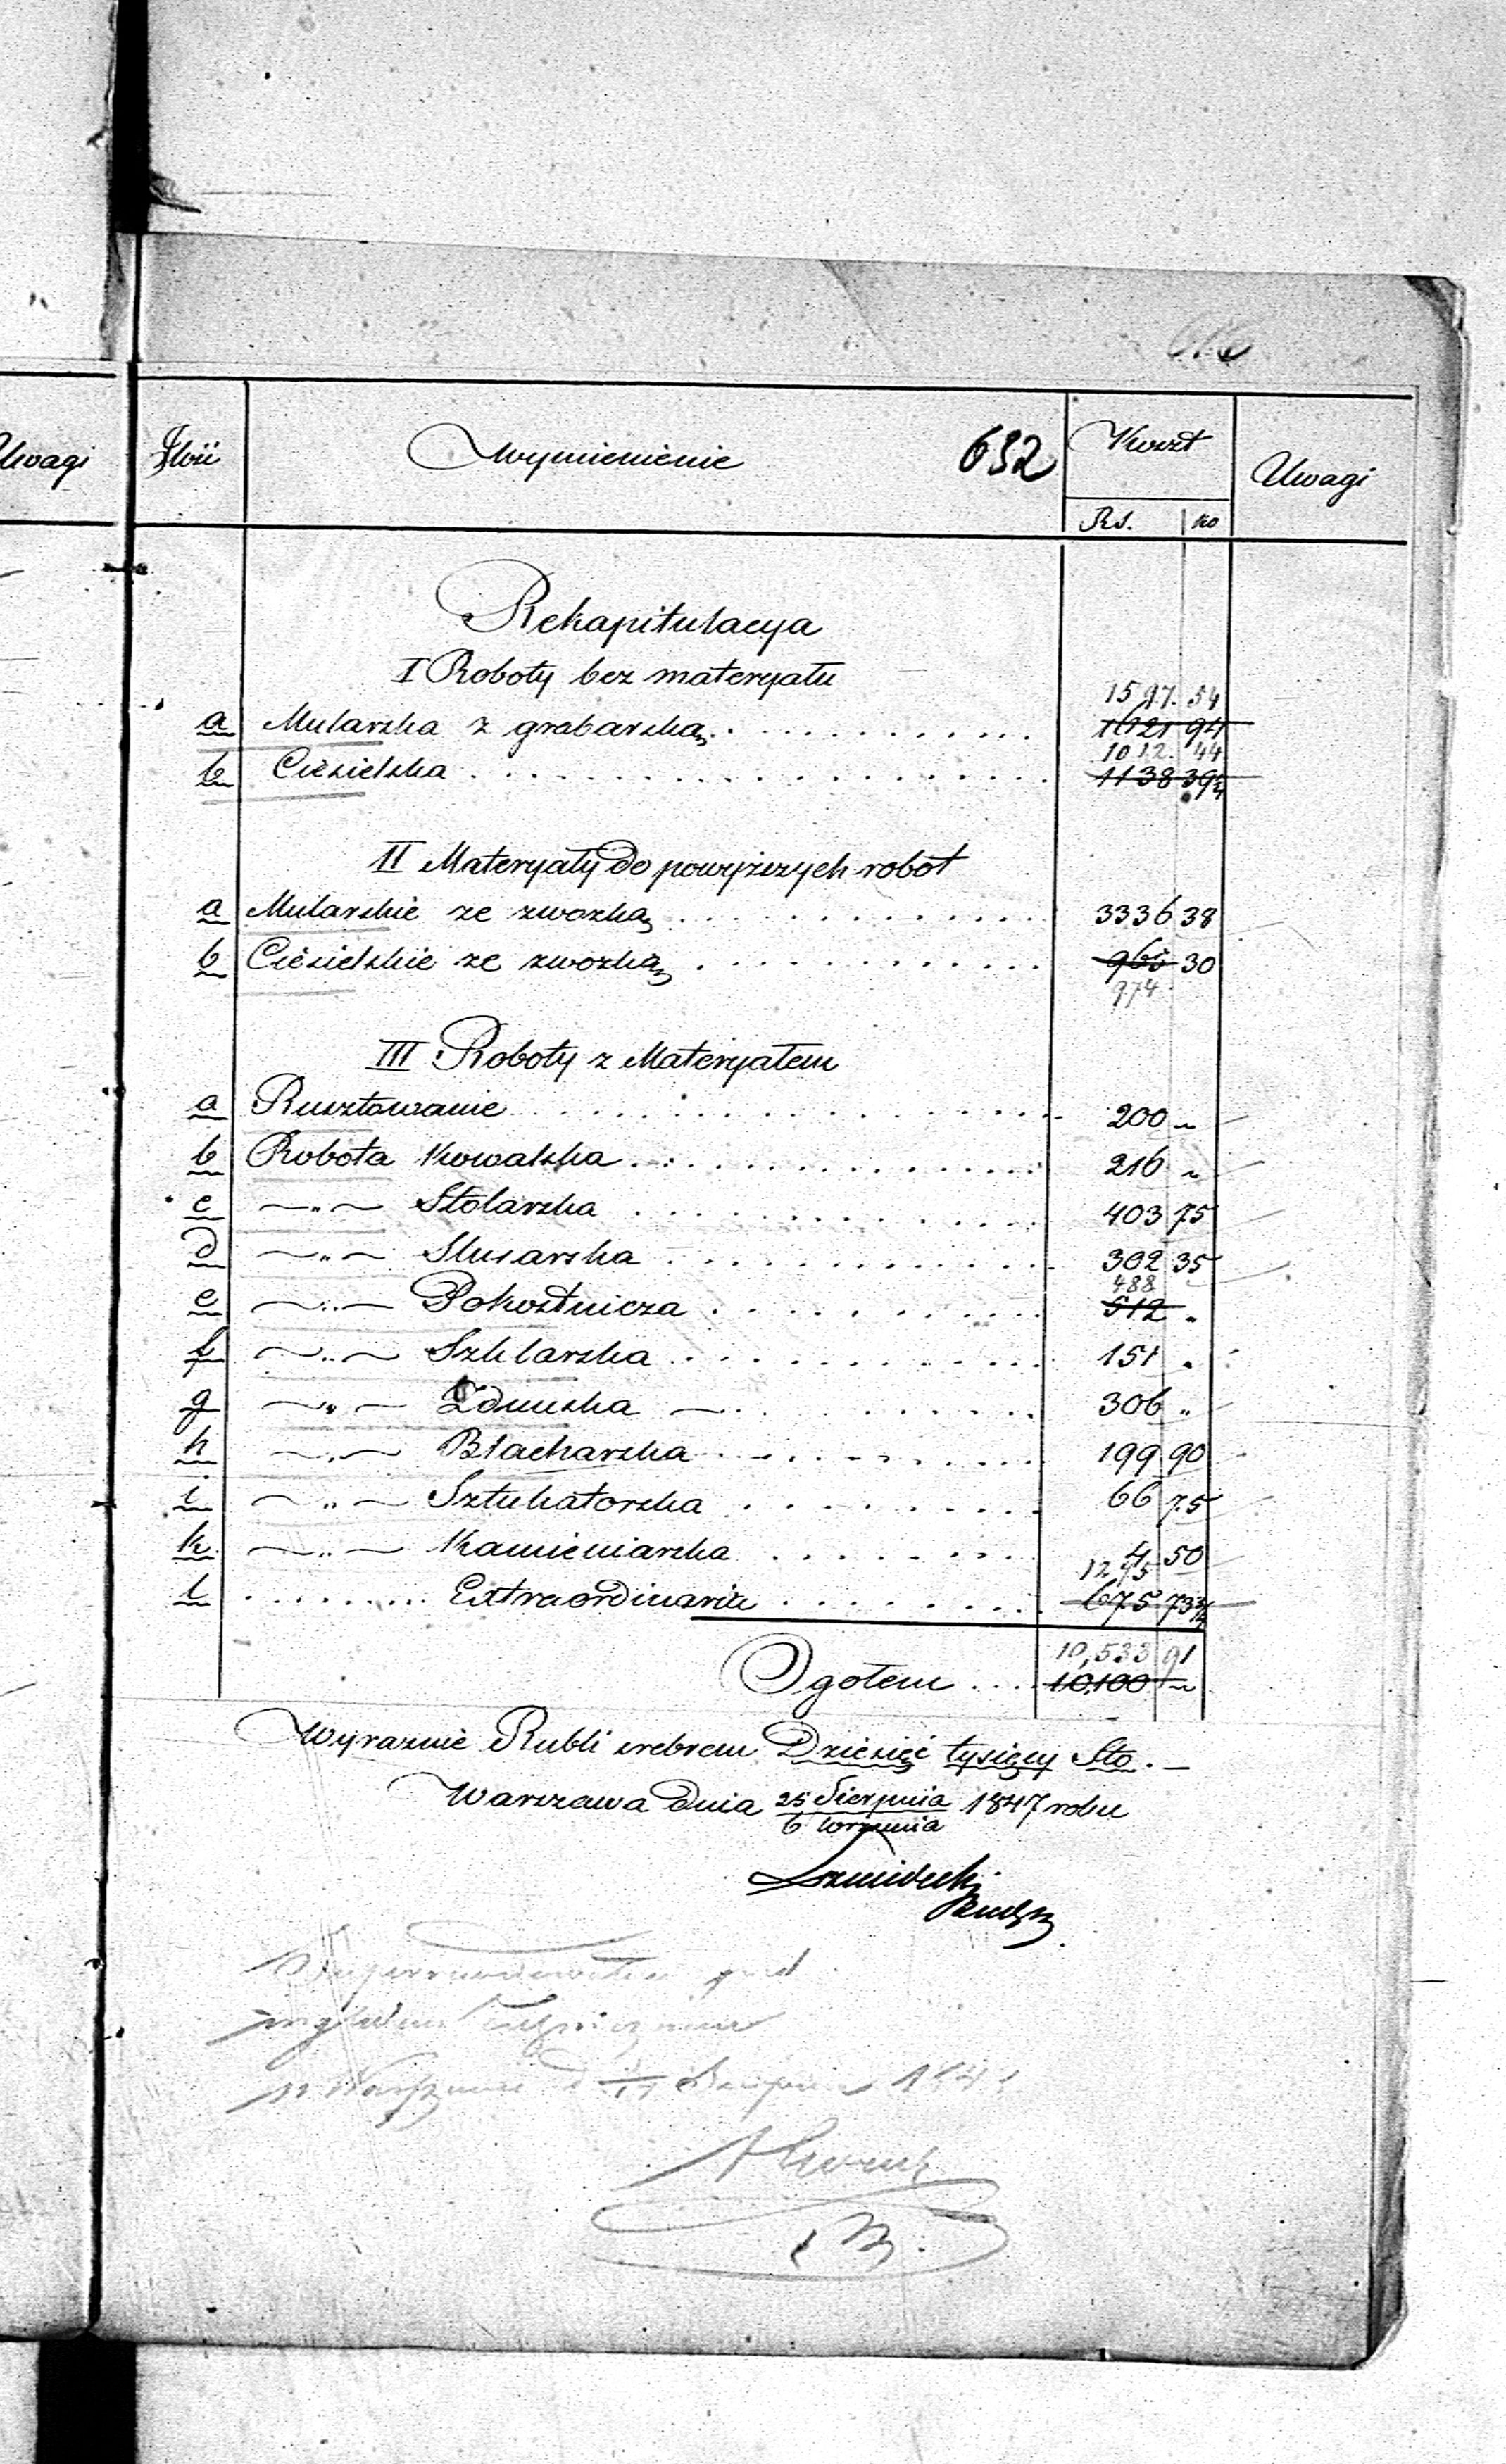 Uwagi
Ilość Wymienienie 632 Koszt Uwagi
Rs. ko
Rekapitulacya
I Roboty bez materyału
1597. 54
a Mularska z grabarską 1621 94
1012. 44
b Ciesielska 1138 39¼
II Materyały do powyższych robot
a Mularskie ze zwozką 3336 38
b Ciesielskie ze zwozką 965 30
974
III Roboty z Materyałem
a Rusztowanie 200 "
b Robota Kowalska 216 "
c —"— Stolarska 403 75
d —"— Slusarska 302 35
488
e —"— Pokostnicza 512 "
f —"— Szklarska 151 "
g —"— Zduńska 306 "
h —"— Blacharska 199 90
i —"— Sztukatorska 66 75
k —"— Kamieniarska 4 50
1275
l Extraordinaria 675 73¾
10,533 91
Ogołem 10,100 "
Wyraznie Rubli srebrem Dziesięć tysięcy Sto. —
Warszawa dnia 25 Sierpnia 1847 roku
6 Wrzesnia
w Warszawie d